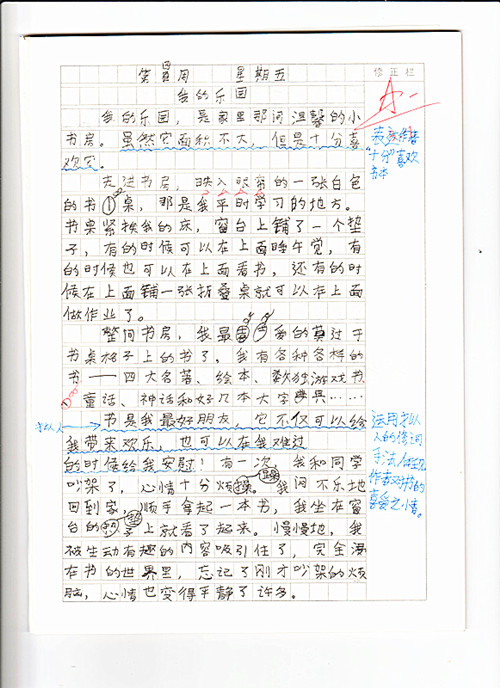 第四周 星期五
修正栏
我的乐园
A-
我的乐园，是家里那间温馨的小
书房。虽然它面积不大，但是十分喜
欢它。
"十分"喜欢
走进书房，映入眼帘的一张白色
的书桌，那是我平时学习的地方。
书桌紧挨我的床，窗台上铺了一个垫
子，有的时候可以在上面睡午觉，有
的时候也可以在上面看书，还有的时
候在上面铺一张折叠桌就可以在上面
做作业了。
整间书房，我最 爱的莫过于
书桌格子上的书了，我有各种各样的
书——四大名著、绘本、数独游戏书、
童话、神话和好几本大字典……
书是我最好朋友，它不仅可以给
我带来欢乐，也可以在我难过
的时候给我安慰！有一次，我和同学
吵架了，心情十分烦躁。我闷不乐地
回到家，顺手拿起一本书，我坐在窗
台的垫子上就看了起来。慢慢地，我
被生动有趣的内容吸引住了，完全沉
在书的世界里，忘记了刚才吵架的烦
恼，心情也变得平静了许多。
拟人
运用了拟
人的修词
手法，
作者对书的
喜爱之情。